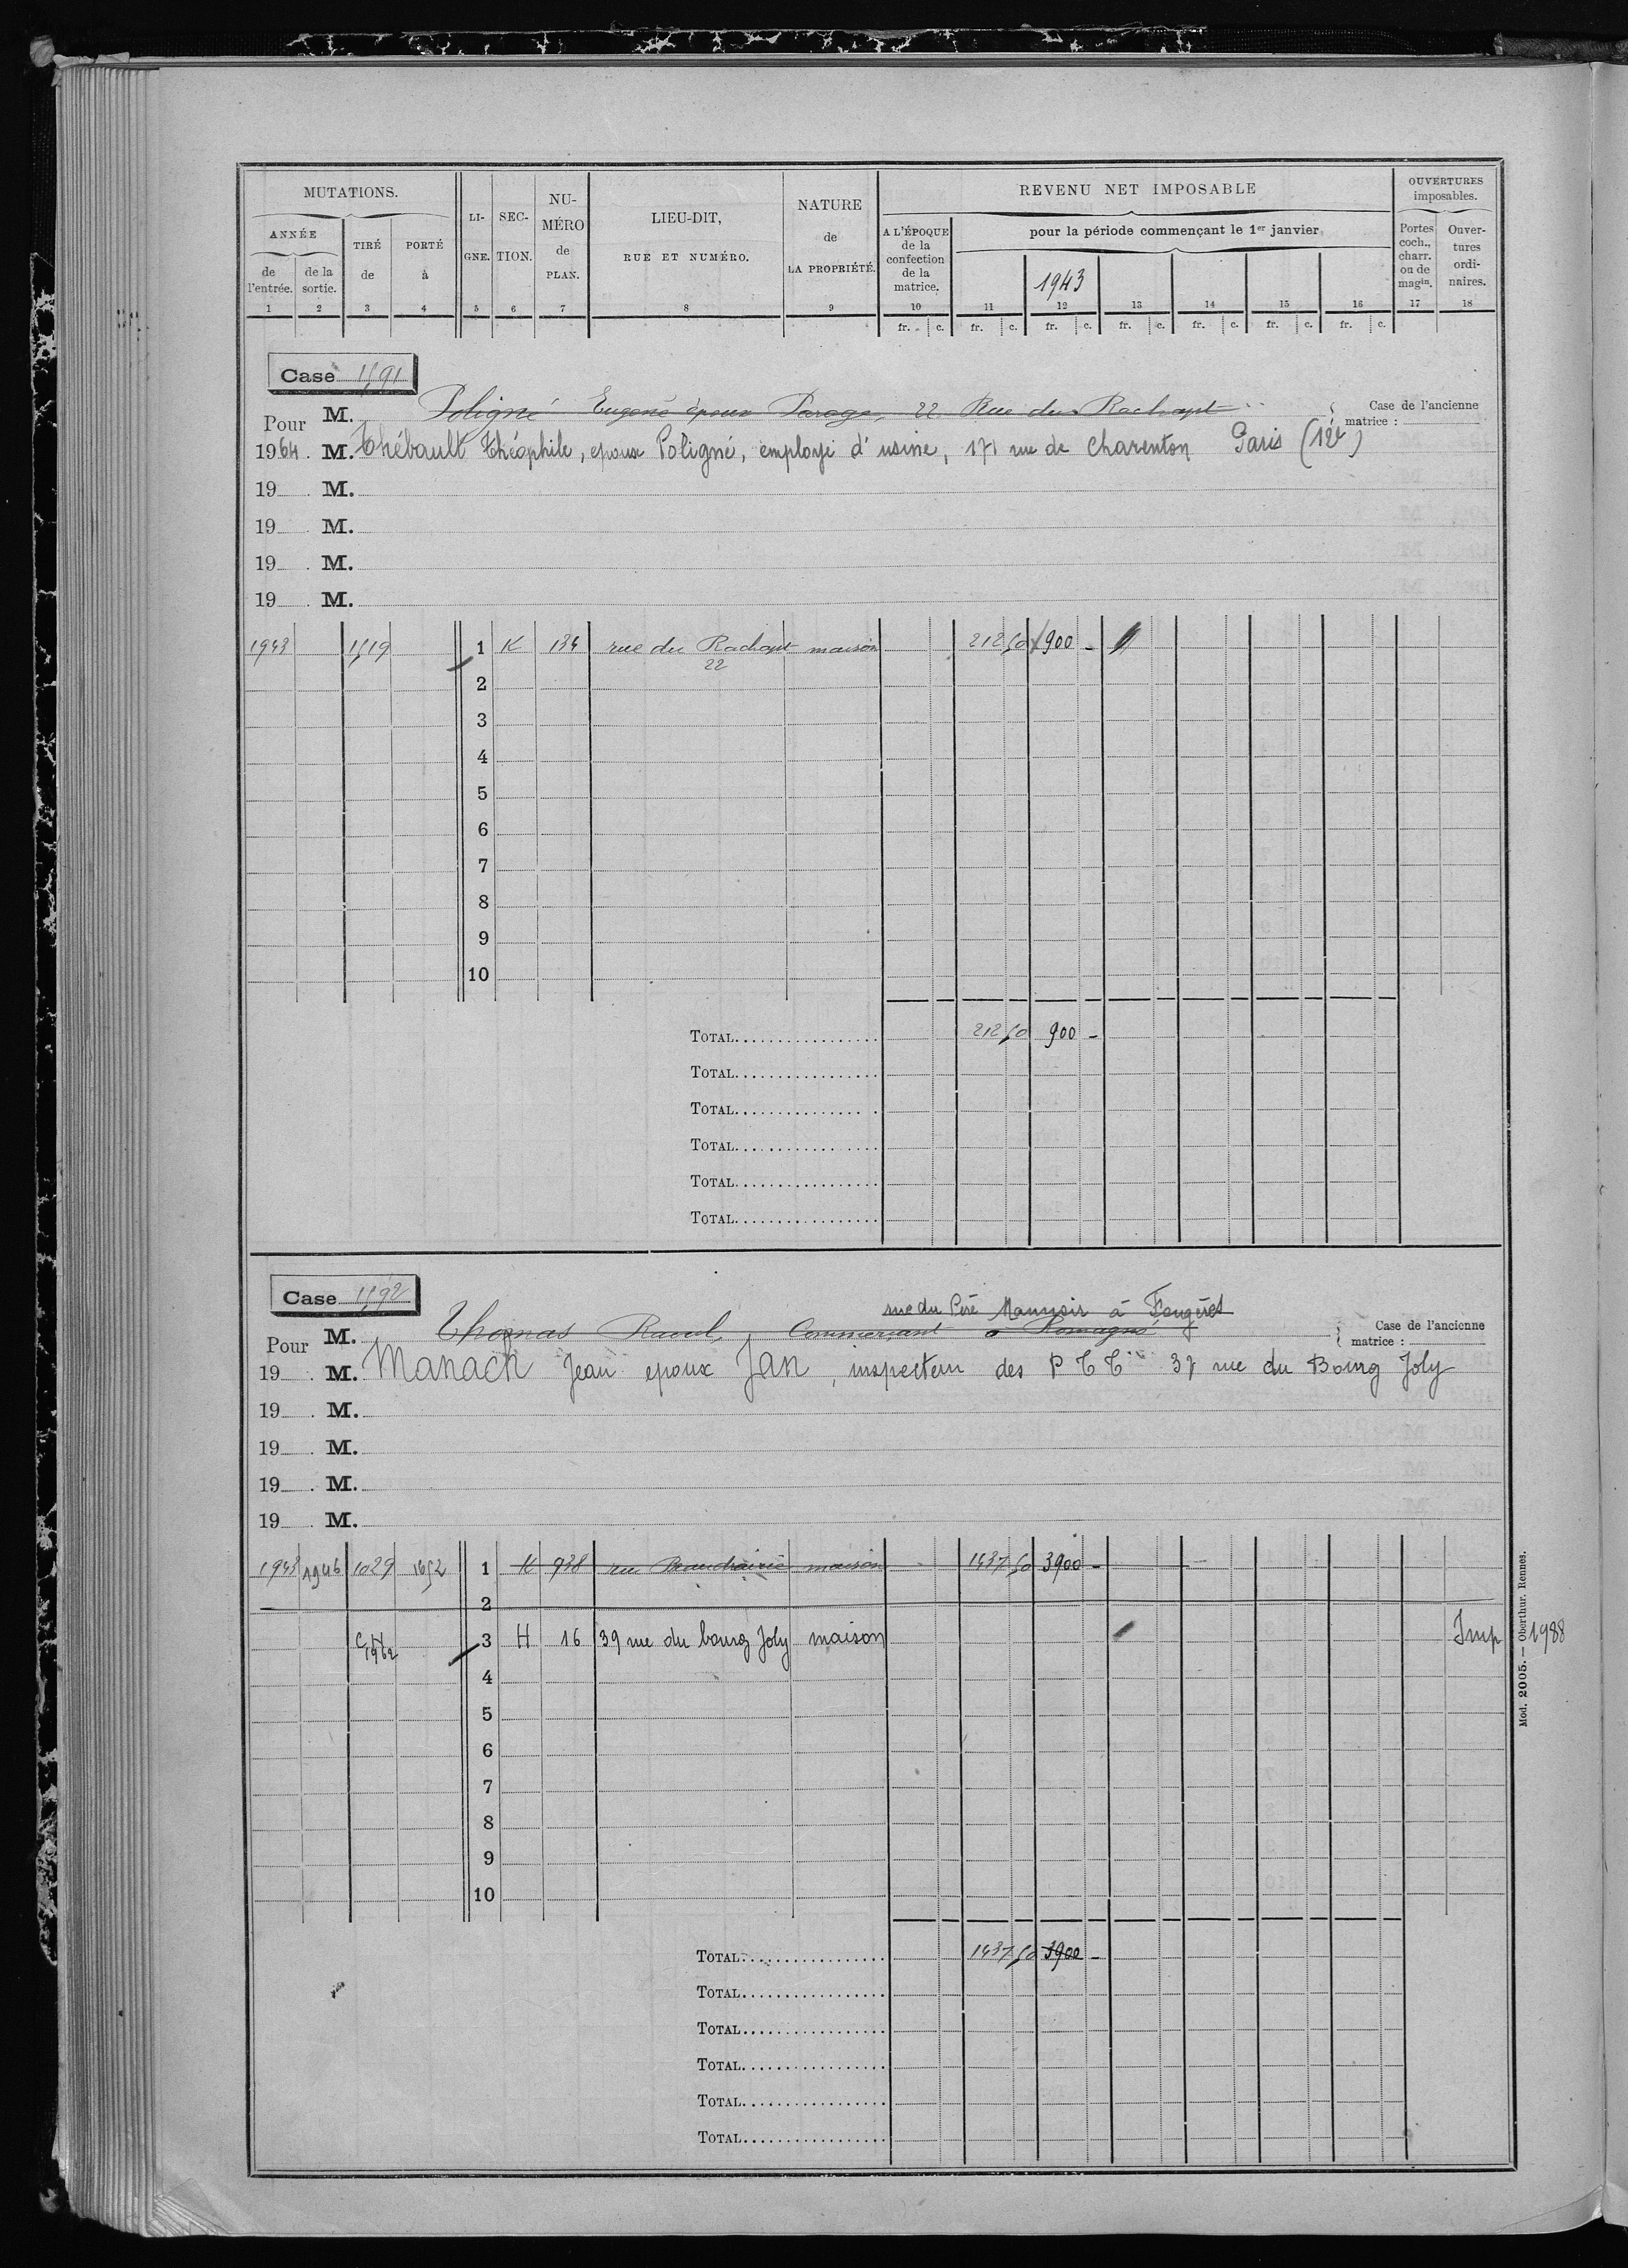 MUTATIONS.
ANNÉE
de l'entrée.
de la sortie.
TIRÉ de
PORTÉ à
LIGNE.
SECTION.
NUMÉRO de PLAN.
LIEU-DIT,
RUE ET NUMÉRO.
NATURE de LA PROPRIÉTÉ.
REVENU NET IMPOSABLE
A L'ÉPOQUE de la confection de la matrice.
pour la période commençant le 1er janvier
1943
OUVERTURES imposables.
Portes coch., charr. ou de magin.
Ouvertures ordinaires.
1 2 3 4 5 6 7 8 9 10 11 12 13 14 15 16 17 18
fr. c. fr. c. fr. c. fr. c. fr. c. fr. c. fr. c.
Case 1591
Pour M. Poligné Eugène époux Parage, 22 Rue du Rachapt
Case de l'ancienne matrice :
1964. M. Thébault Théophile, epoux Poligné, employé d'usine, 171 rue de Charenton Paris (12e)
19 . M.
19 . M.
19 . M.
19 . M.
1943 1519 1 K 134 rue du Rachapt maison 212 50 900 -
22
2
3
4
5
6
7
8
9
10
TOTAL................. 212 50 900 -
TOTAL.................
TOTAL.................
TOTAL.................
TOTAL.................
TOTAL.................
Case 1592
rue du Père Maunoir à Fougères
Pour M. Thomas Raoul, Commerçant à Romagné
Case de l'ancienne matrice :
19 . M. Manach Jean epoux Jan, inspecteur des PTT 37 rue du Bourg Joly
19 . M.
19 . M.
19 . M.
19 . M.
1943 1946 1029 1652 1 K 938 rue Beaudrairie maison 1437 50 3900 -
2
CH 1962 3 H 16 39 rue du bourg Joly maison Imp 1988
4
5
6
7
8
9
10
TOTAL................. 1437 50 3900 -
TOTAL.................
TOTAL.................
TOTAL.................
TOTAL.................
TOTAL.................
Mod. 2005. — Oberthur. Rennes.